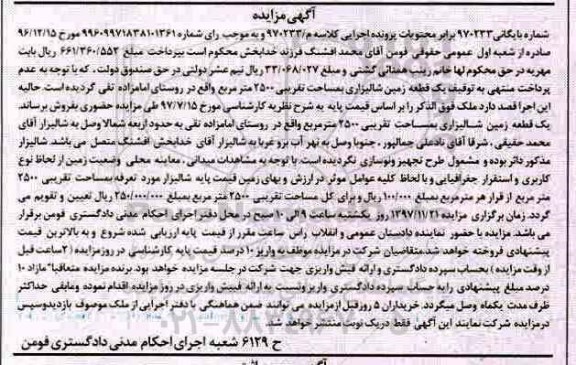 آگهی مزایده
شماره بایگانی ۹۷۰۲۲۳ برابر محتویات پرونده اجرایی کلاسه م/۹۷۰۲۲۳ و به موجب رای شماره ۹۹۶۰۹۹۷۱۸۳۸۱۰۱۳۶۱ مورخ ۹۶/۱۲/۱۵
صادره از شعبه اول عمومی حقوقی فومن آقای محمد افشنگ فرزند خدابخش محکوم است بپرداخت مبلغ ۶۶۱/۳۶۰/۵۵۲ ریال بابت
مهریه در حق محکوم لها خانم زینب همتائی گشتی و مبلغ ۳۳/۰۶۸/۰۲۷ ریال نیم عشر دولتی در حق صندوق دولت. که با توجه به عدم
پرداخت منتهی به توقیف یک قطعه زمین شالیزاری بمساحت تقریبی ۲۵۰۰ متر مربع واقع در روستای امامزاده تقی گردیده است. حالیه
این اجرا قصد دارد ملک فوق الذکر را بر اساس قیمت پایه به شرح نظریه کارشناسی مورخ ۹۷/۷/۱۵ طی مزایده حضوری بفروش برساند.
یک قطعه زمین شالیزاری بمساحت تقریبی ۲۵۰۰ مترمربع واقع در روستای امامزاده تقی به حدود اربعه شمالا وصل به شالیزار آقای
محمد حقیقی. شرقا آقای نادعلی جمالپور. جنوبا وصل به نهر آب برو غربا به شالیزار آقای خدابخش افشنگ متصل می باشد. شالیزار
مذکور دائر بوده و مشمول طرح تجهیز ونوسازی نگردیده است. با توجه به مشاهدات میدانی. معاینه محلی وضعیت زمین از لحاظ نوع
کاربری و استقرار جغرافیایی و با لحاظ کلیه عوامل موثر در ارزش و بهای زمین قیمت پایه شالیزار مورد تعرفه بمساحت تقریبی ۲۵۰۰
متر مربع از قرار هر مترمربع بمبلغ ۱۰۰/۰۰۰ ریال و برای کل مساحت تقریبی ۲۵۰۰ متر مربع بمبلغ ۲۵۰/۰۰۰/۰۰۰ ریال تعیین و تقویم می
گردد. زمان برگزاری مزایده ۱۳۹۷/۱۱/۲۱ روز یکشنبه ساعت ۹ الی ۱۰ صبح در محل دفتر اجرای احکام مدنی دادگستری فومن برقرار
می باشد. مزایده با حضور نماینده دادستان عمومی و انقلاب راس ساعت مقرر از قیمت پایه ارزیابی شده شروع و به بالاترین قیمت
پیشنهادی فروخته خواهد شد. متقاضیان شرکت در مزایده موظف به واریز ۱۰ درصد قیمت پایه کارشناسی در روز مزایده (۲ ساعت قبل
از وقت مزایده) بحساب سپرده دادگستری و ارائه فیش واریزی جهت شرکت در جلسه مزایده خواهد بود. برنده مزایده متعاقبا" مازاد ۱۰
درصد مبلغ پیشنهادی را به حساب سپرده دادگستری واریز ونسبت به ارائه فیش واریزی در روز مزایده اقدام نموده ومابقی حداکثر
ظرف مدت یکماه وصل میگردد. خریداران ۵ روز قبل از مزایده می توانند ضمن هماهنگی با دفتر اجرایی از ملک موصوف بازدید وسپس
در مزایده شرکت نمایند این آگهی فقط در یک نوبت منتشر خواهد شد.
ح ۶۱۲۹ شعبه اجرای احکام مدنی دادگستری فومن